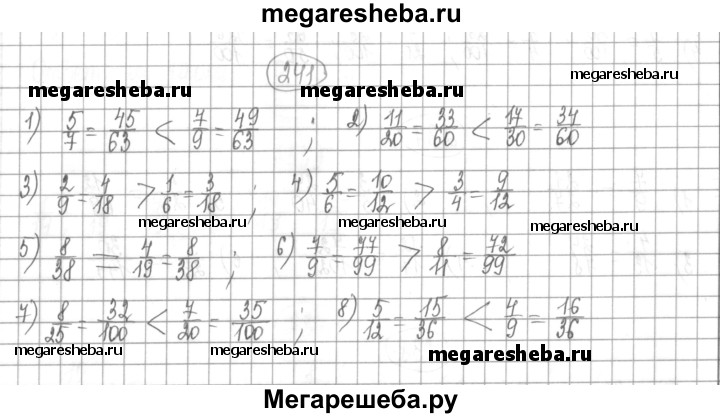 megaresheba.ru
241
megaresheba.ru megaresheba.ru megaresheba.ru
1) 5/7 = 45/63 < 7/9 = 49/63 ; 2) 11/20 = 33/60 < 17/30 = 34/60
3) 2/9 = 4/18 > 1/6 = 3/18 ; 4) 5/6 = 10/12 > 3/4 = 9/12
megaresheba.ru megaresheba.ru megaresheba.ru
5) 8/38 = 4/19 = 8/38 ; 6) 7/9 = 77/99 > 8/11 = 72/99
7) 8/25 = 32/100 < 7/20 = 35/100 ; 8) 5/12 = 15/36 < 4/9 = 16/36
megaresheba.ru megaresheba.ru megaresheba.ru
Мегарешеба.ру